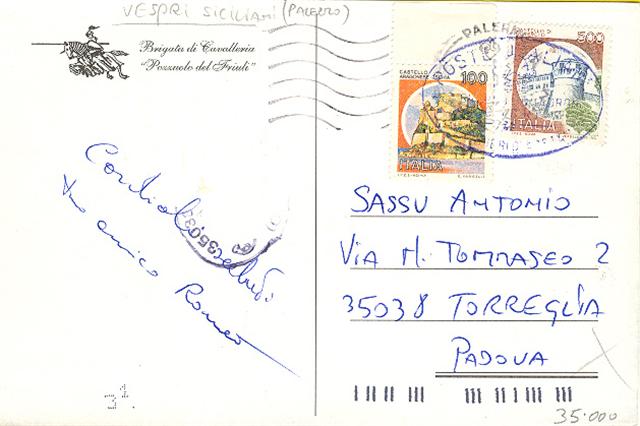 VESPRI SICILIANI (PALERMO)
Brigata di Cavalleria
"Pozzuolo del Friuli"
CASTELLO
ARAGONESE ISCHIA
100
ITALIA
PALERMO
500
ITALIA
Cordiali saluti
tuo amico Romeo
35038
SASSU ANTONIO
VIA N. TOMMASEO 2
35038 TORREGLIA
PADOVA
31.
35.000